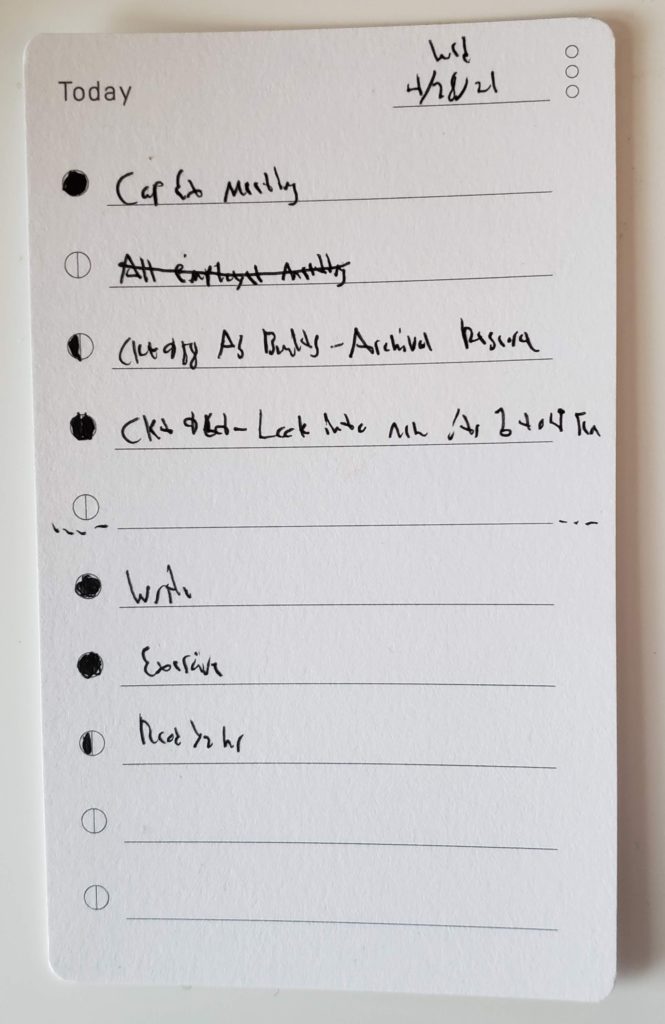 Today
Wed
4/28/21
Cap Ex Meeting
All Employee Meeting
As Builds - Archival Record
Look into new
Write
Exercise
Read 1/2 hr